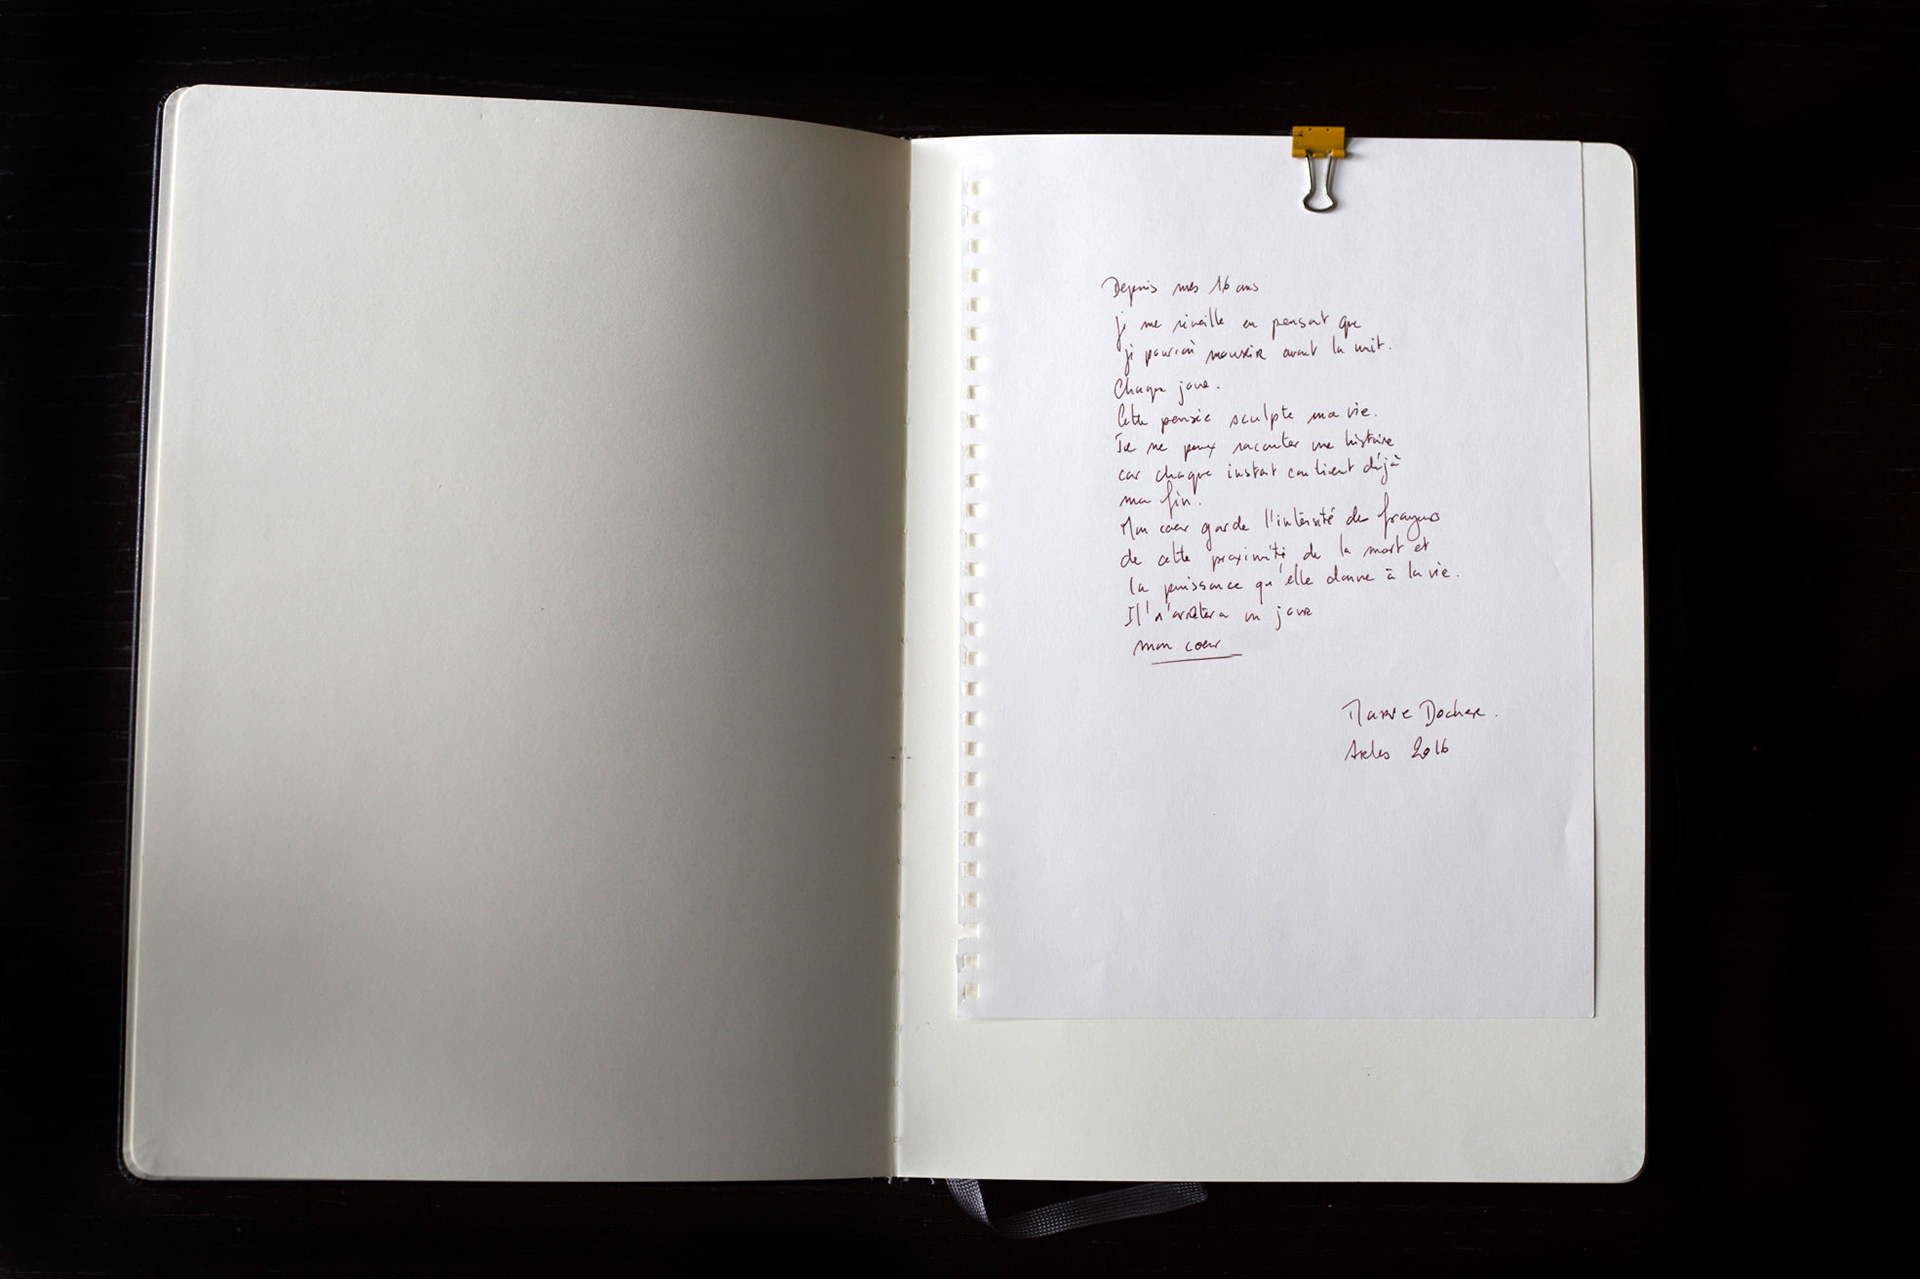 Depuis mes 16 ans
je me réveille en pensant que
je pourrai mourir avant la nuit.
Chaque jour.
Cette pensée sculpte ma vie.
Je ne peux raconter une histoire
car chaque instant contient déjà
ma fin.
Mon cœur garde l'intensité des frayeurs
de cette proximité de la mort et
la puissance qu'elle donne à la vie.
Il s'arrêtera un jour
mon cœur
Marie Docher.
Arles 2016